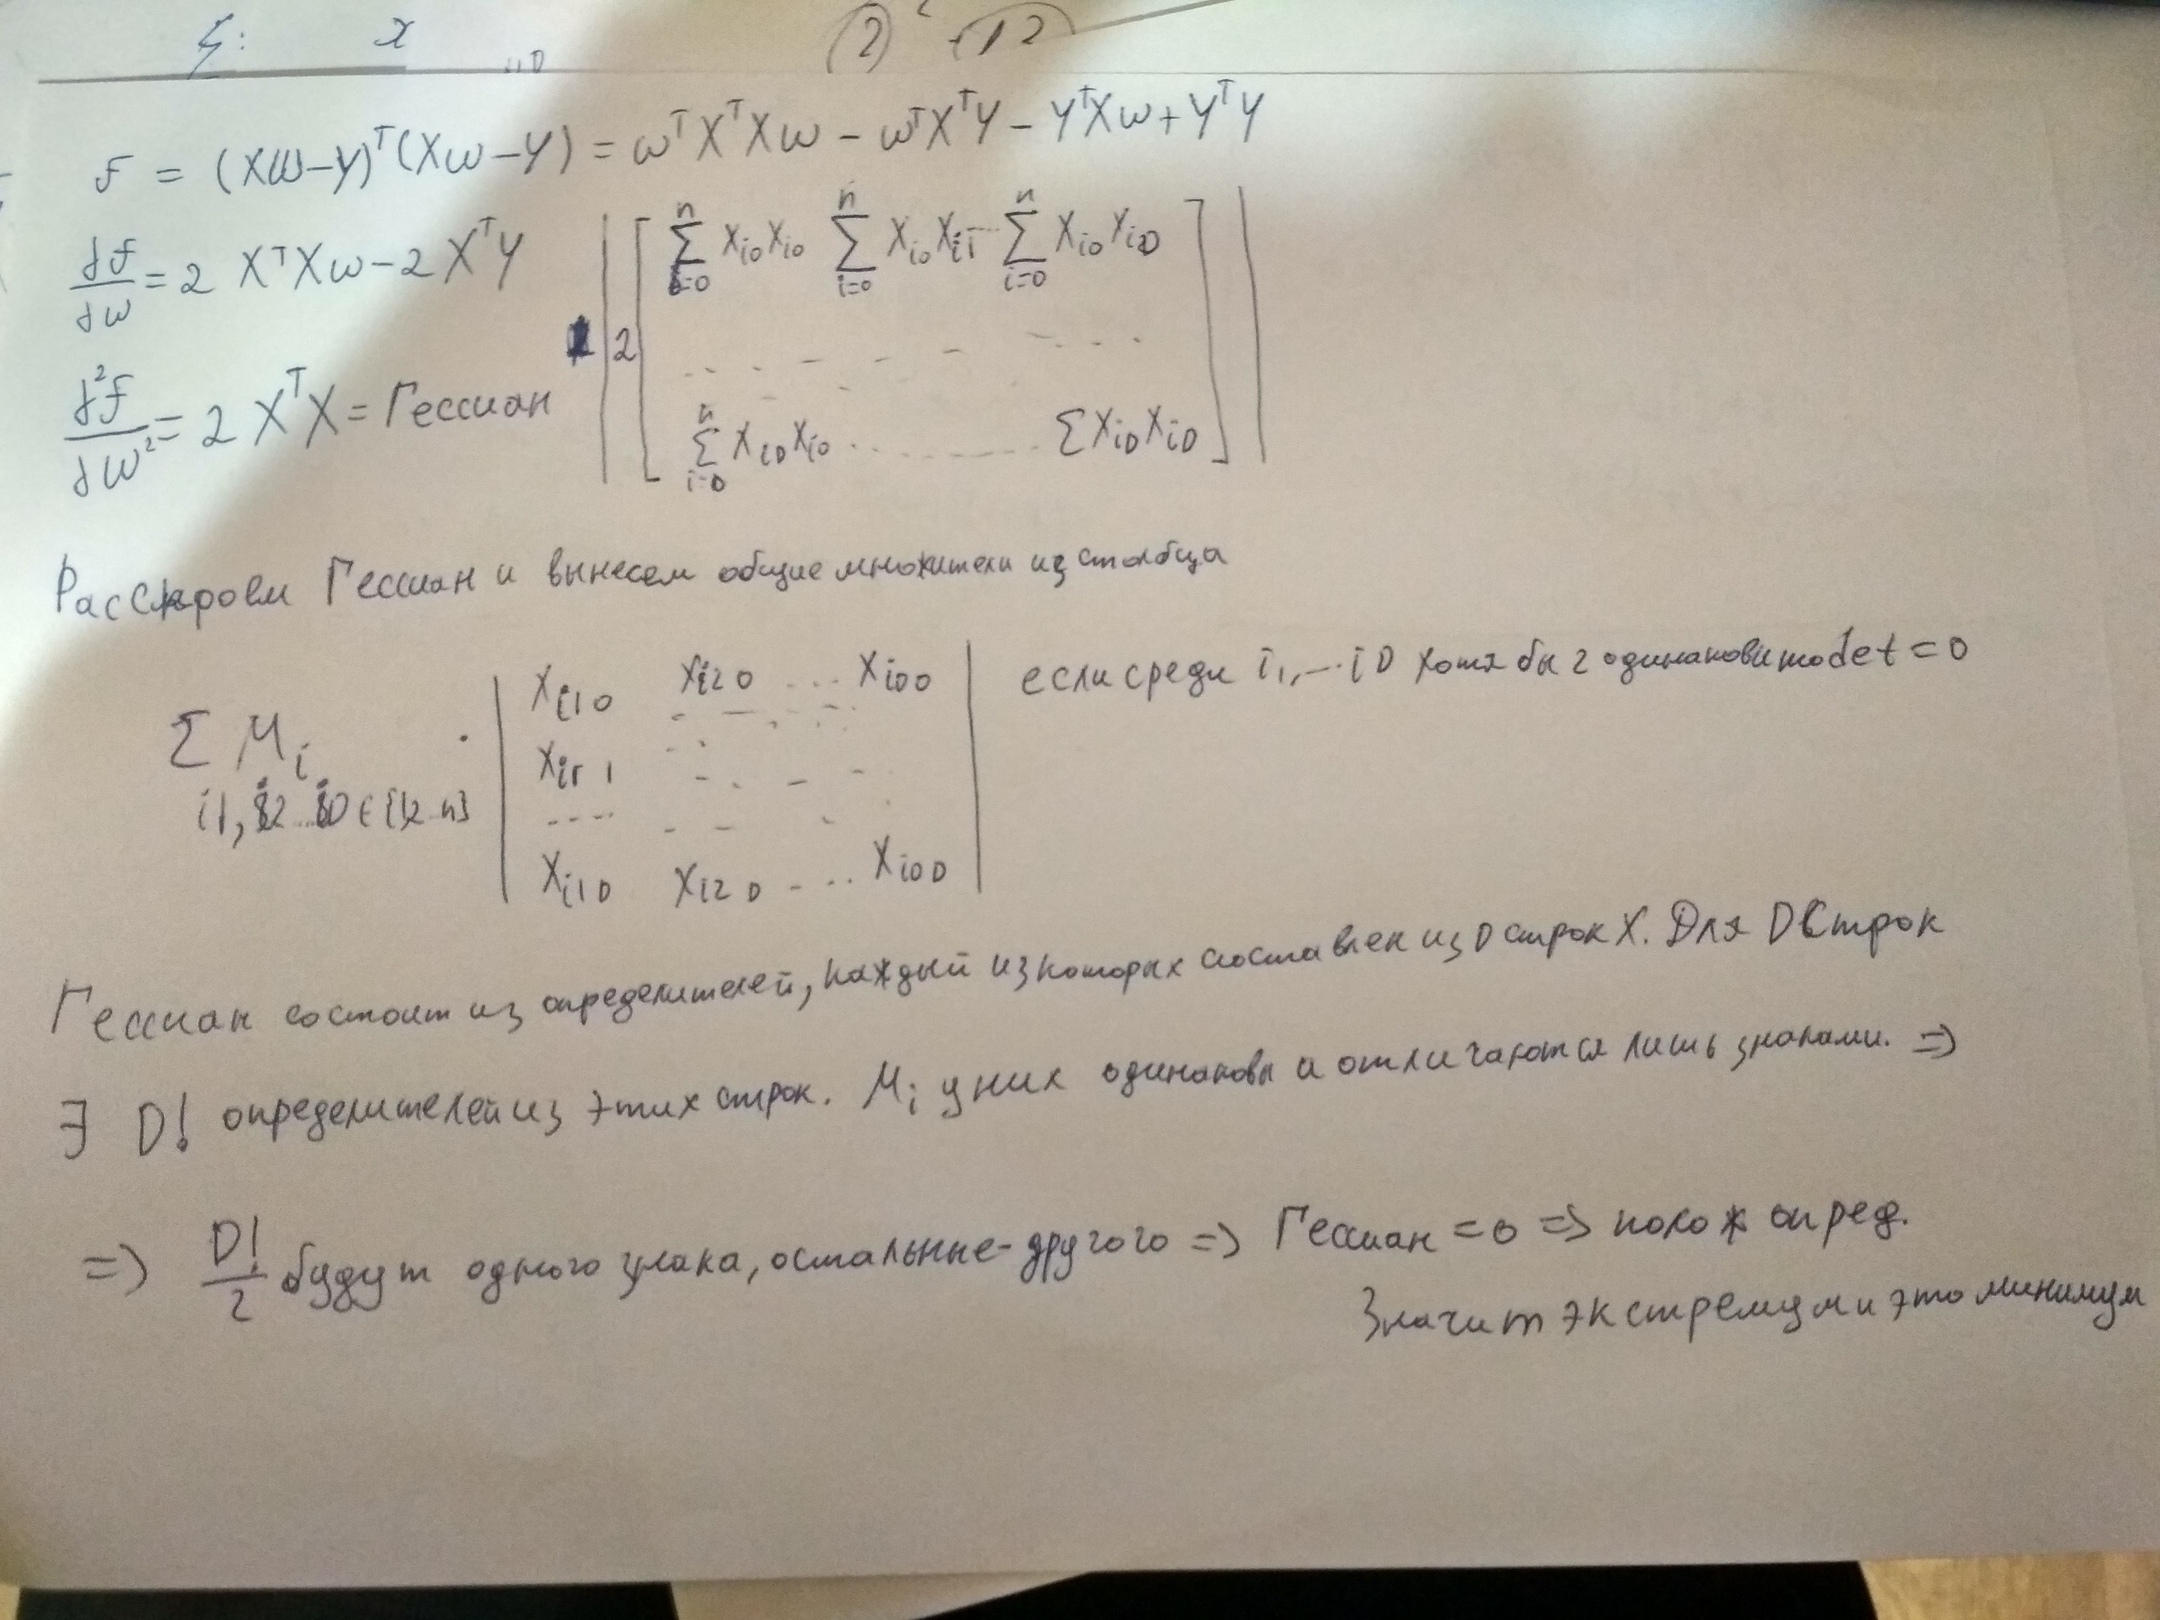 ξ: x
2 12
F = (Xω-Y)ᵀ(Xω-Y) = ωᵀXᵀXω - ωᵀXᵀY - YᵀXω + YᵀY
df/dω = 2 XᵀXω - 2 XᵀY
d²f/dω² = 2 XᵀX = Гессиан
| 2 [ ∑ⁿᵢ₌₀ Xi0Xi0 ∑ⁿᵢ₌₀ Xi0Xi1 ... ∑ⁿᵢ₌₀ Xi0XiD
. . . . . . . .
∑ⁿᵢ₌₀ XiDXi0 . . . . . . ∑XiDXiD ] |
Расскроем Гессиан и вынесем общие множители из столбца
∑ Mi · | Xi10 Xi20 ... XiD0 | если среди i1,...iD хотя бы 2 одинаковы то det = 0
Xi11 . . .
i1, i2...iD ∈ {1,2..n}
Xi1D Xi2D ... XiDD
Гессиан состоит из определителей, каждый из которых составлен из D строк X. Для D строк
∃ D! определителей из этих строк. Mi у них одинаковы и отличаются лишь знаками. =>
=> D!/2 будут одного знака, остальные - другого => Гессиан = 0 => полож опред.
Значит экстремум и это минимум